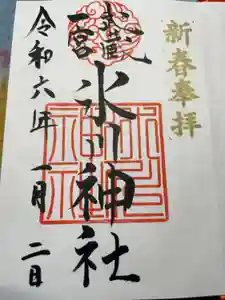 新春奉拝
武蔵国
一宮
氷川神社
令和六年
一月
二日